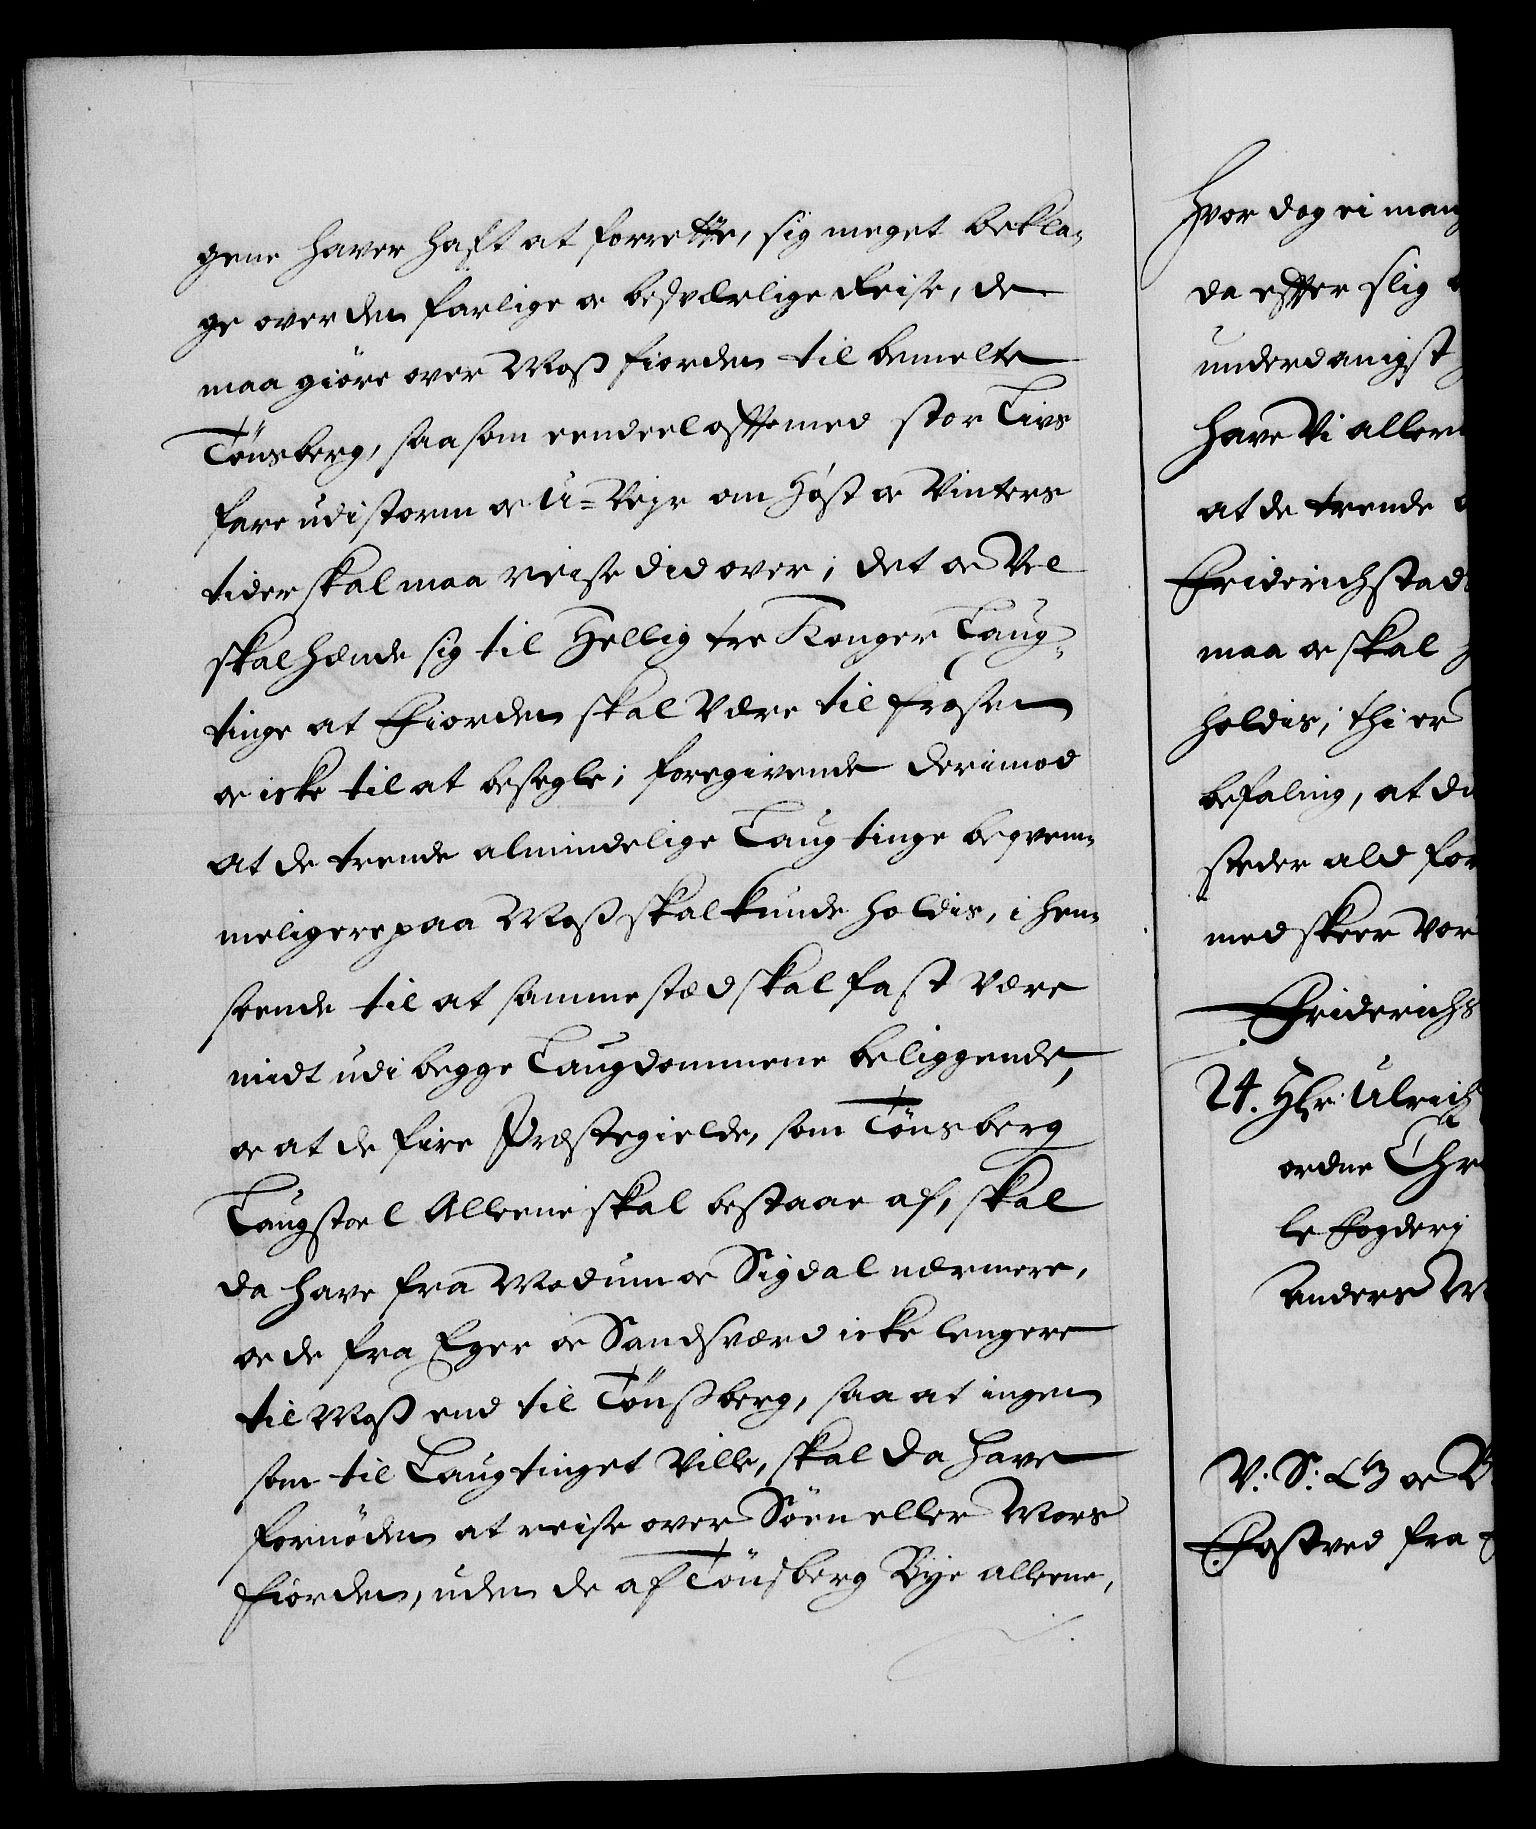 gene haver haft at forrette, sig meget bekla-
ge over den farlige oc besværlige Reise, de
maa giöre over Moss fiorden til bemelte
Tönsberg, saasom eendeel offte med stor Livs
fare udi storm oc U-Vejr om Höst oc Vinters
tider skal maa reise did over; det oc Vel
skal hænde sig til Hellig tre Konger Laug-
tinge at Fiorden skal Være tilfrosen
oc icke til at besegle; foregivende derimod
at de trende almindelige Laugtinge beqvem-
meligere paa Moss skal kunde holdis, i hen-
seende til at samme stæd skal fast Være
midt udi begge Laugdommene beliggende,
oc at de fire Præstegielde, som Tönsberg
Laugstoel Alleene skal bestaae af, skal
da have fra Modum oc Sigdal nærmere,
oc de fra Eger oc Sandsværd icke lengere
til Moss end til Tönssberg, saa at ingen
som til Laugtinget Ville, skal da have
fornöden at reise over Söen eller Moss
fiorden, uden de af Tönsberg Bye alleene,
Hvor dog ei man
da effter slig
underdanigst
have Vi aller
at de trende
Friderichstad
maa oc skal
holdis; thi er
befaling, at du
steder ald for
med skeer Vor
Friderichs
24. Hr. Ulrich
ordne Chr
le Fogderj
Anders
V. S. G oc
Fosved fra